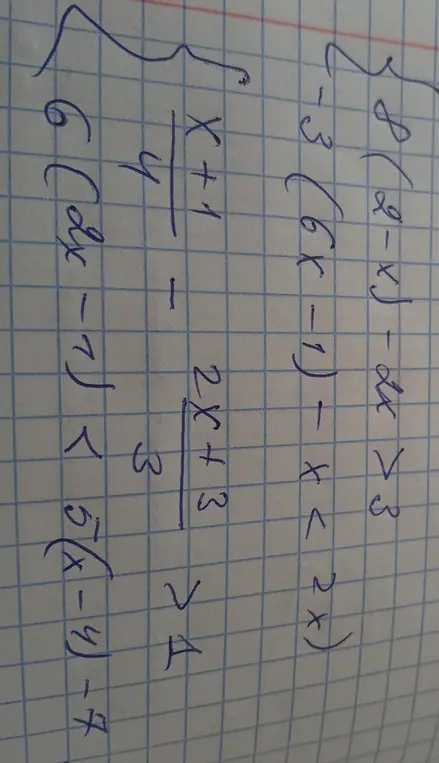 { 8(2-x)-2x>3
-3(6x-1)-x<2x)
{ x+1/4 - 2x+3/3 >1
6(2x-1)<5(x-4)-7